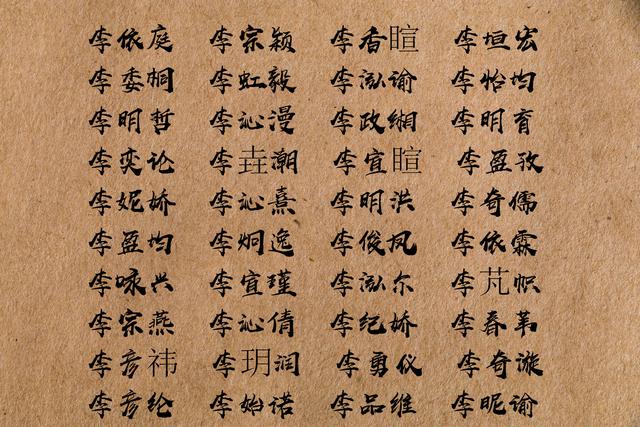 李依庭 李宗颖 李香暄 李垣宏
李委桐 李虹毅 李泓谕 李怡均
李明哲 李沁漫 李政缃 李明育
李奕论 李垚潮 李宣暄 李盈孜
李妮娇 李沁熹 李明洪 李奇儒
李盈均 李炯逸 李俊凤 李依霖
李咏兴 李宣瑾 李泓尔 李芃帜
李宗燕 李沁倩 李纪娇 李春苇
李彦祎 李玥润 李勇仪 李奇漩
李彦纶 李始诺 李品维 李昵谕